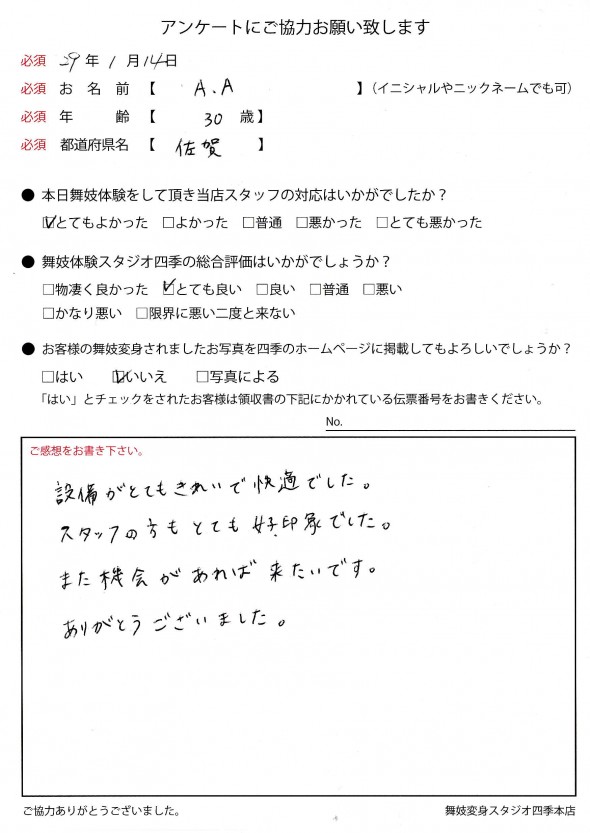 アンケートにご協力お願い致します
必須 29年 1月 14日
必須 お名前 【 A.A 】（イニシャルやニックネームでも可）
必須 年齢 【 30 歳】
必須 都道府県名 【 佐賀 】
● 本日舞妓体験をして頂き当店スタッフの対応はいかがでしたか？
☑とてもよかった □よかった □普通 □悪かった □とても悪かった
● 舞妓体験スタジオ四季の総合評価はいかがでしょうか？
□物凄く良かった ☑とても良い □良い □普通 □悪い
□かなり悪い □限界に悪い二度と来ない
● お客様の舞妓変身されましたお写真を四季のホームページに掲載してもよろしいでしょうか？
□はい ☑いいえ □写真による
「はい」とチェックをされたお客様は領収書の下記にかかれている伝票番号をお書きください。
No.
ご感想をお書き下さい。
設備がとてもきれいで快適でした。
スタッフの方もとても好印象でした。
また機会があれば来たいです。
ありがとうございました。
ご協力ありがとうございました。 舞妓変身スタジオ四季本店